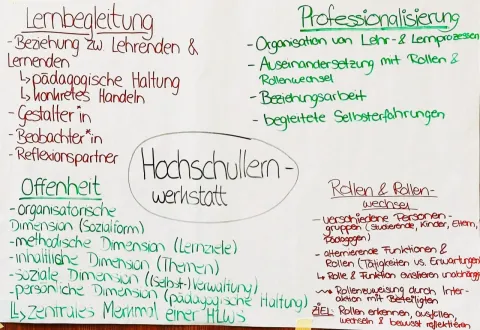 Lernbegleitung
- Beziehung zw Lehrenden &
Lernenden
↳ pädagogische Haltung
↳ konkretes Handeln
- Gestalter*in
- Beobachter*in
- Reflexionspartner
Professionalisierung
- Organisation von Lehr- & Lernprozessen
- Auseinandersetzung mit Rollen &
Rollenwechsel
- Beziehungsarbeit
- begleitete Selbsterfahrungen
Hochschullern-
werkstatt
Offenheit
- organisatorische
Dimension (Sozialform)
- methodische Dimension (Lernziele)
- inhaltliche Dimension (Themen)
- soziale Dimension (Selbst-)Verwaltung)
- persönliche Dimension (pädagogische Haltung)
↳ zentrales Merkmal einer HLWS
Rollen & Rollen-
wechsel
- verschiedene Personen-
gruppen (Studierende, Kinder, Eltern,
Pädagogen)
- alternierende Funktionen &
Rollen (Tätigkeiten vs. Erwartungen)
↳ Rolle & Funktion existieren unabhängig
↝ Rollenzuweisung durch Inter-
aktion mit Beteiligten
ZIEL: Rollen erkennen, ausfüllen,
wechseln & bewusst reflektieren